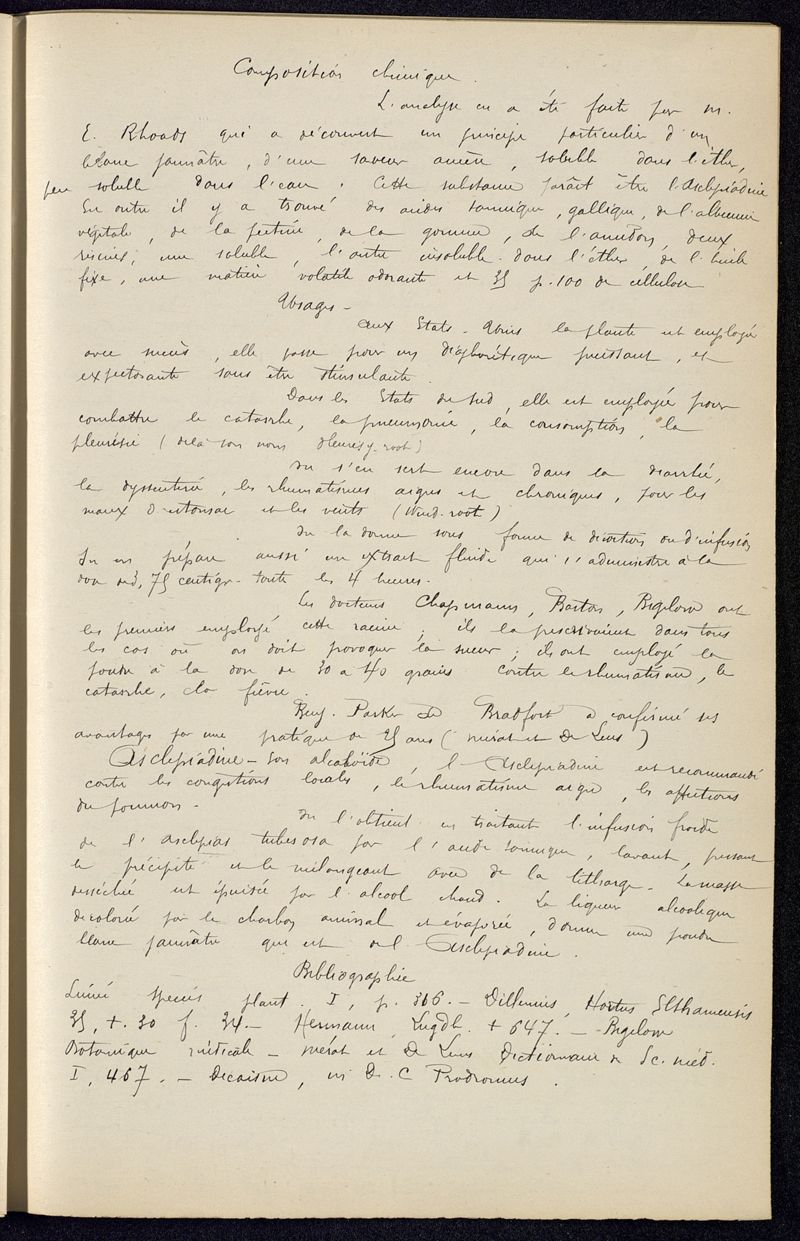 Composition chimique.
L'analyse en a été faite par M.
E. Rhoads qui a découvert un principe particulier d'un
blanc jaunâtre, d'une saveur amère, soluble dans l'éther,
peu soluble dans l'eau. Cette substance parâit être l'Asclépiadine
En outre il y a trouvé des acides tannique, gallique, de l'albumine
végétale, de la pectine, de la gomme, de l'amidon, deux
résines, une soluble, l'autre insoluble dans l'éther, de l'huile
fixe, une matière volatile odorante et 35 p. 100 de cellulose
Usages -
Aux Etats-Unis la plante est employée
avec succès, elle passe pour un diaphorétique puissant, et
expectorante sans être stimulante.
Dans les Etats du Sud, elle est employée pour
combattre le catarrhe, la pneumonie, la consomption, la
pleurésie (de là son nom Pleurisy-root)
On s'en sert encore dans la diarrhée,
la dyssenterie, les rhumatismes aigus et chroniques, pour les
maux d'estomac et les vents (Wind-root)
On la donne sous forme de décoction ou d'infusion
On en prépare aussi un extrait fluide qui s'administre à la
dose de 3,75 centigr. toute les 4 heures.
Les docteurs Chapmann, Barton, Bigelow ont
les premiers employé cette racine; ils la prescrivaient dans tous
les cas où on doit provoquer la sueur; ils ont employé la
poudre à la dose de 30 à 40 grains contre le rhumatisme, le
catarrhe, la fièvre.
Benj. Parker de Bradfort a confirmé ses
avantages par une pratique de 25 ans (Mérat et De Lens)
Asclépiadine - Son alcaloïde, l'Asclépiadine est recommandé
contre les congestions locales, le rhumatisme aigu, les affections
du poumon.
On l'obtient en traitant l'infusion froide
de l'asclepias tuberosa par l'acide tannique, lavant, pressant
le précipité et le mélangeant avec de la litharge. La masse
desséchée est épuisée par l'alcool chaud. La liqueur alcoolique
décolorée par le charbon animal et évaporée, donne une poudre
blanc jaunâtre qui est de l'Asclépiadine.
Bibliographie
Linné Species plant. I, p. 316. - Dillenius, Hortus Elthamensis
35, t. 30 f. 34. - Hermann, Lugdb. t 647. - Bigelow
Botanique médicale - Mérat et De Lens Dictionnaire de Sc. méd.
I, 467. - Decaisne, in D. C Prodromus.